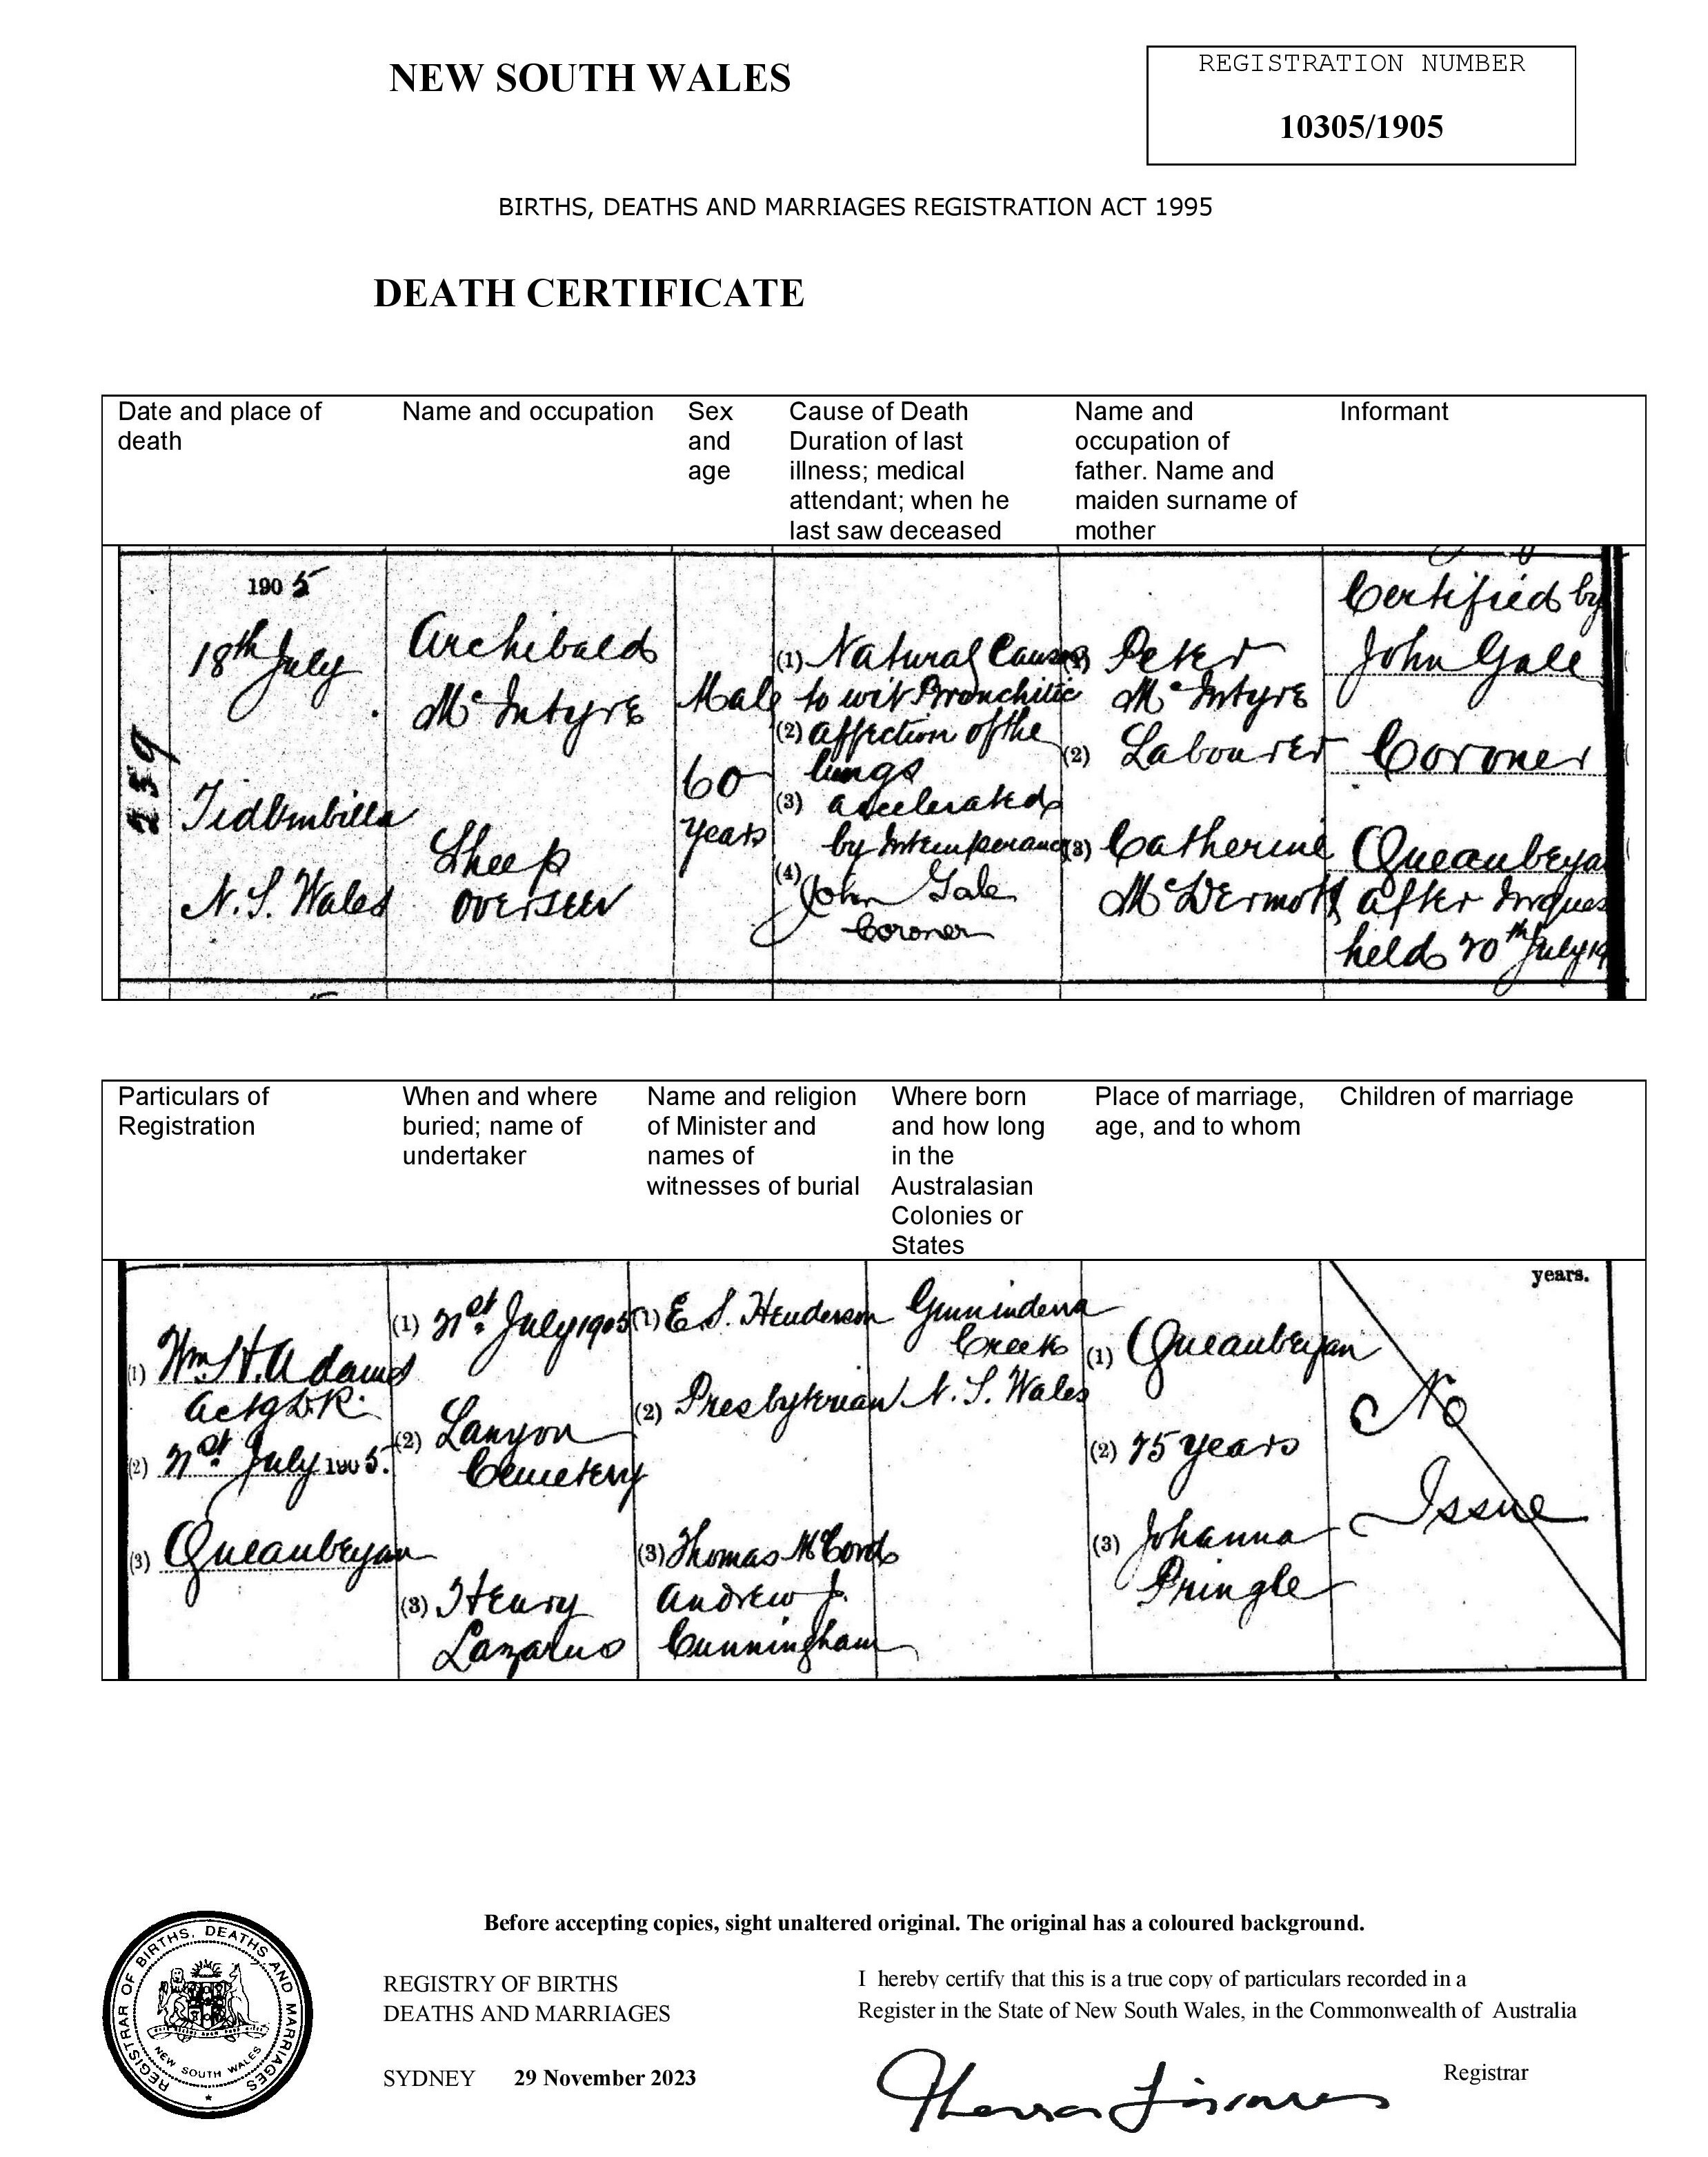 NEW SOUTH WALES
REGISTRATION NUMBER
10305/1905
BIRTHS, DEATHS AND MARRIAGES REGISTRATION ACT 1995
DEATH CERTIFICATE
Date and place of
death
Name and occupation
Sex
and
age
Cause of Death
Duration of last
illness; medical
attendant; when he
last saw deceased
Name and
occupation of
father. Name and
maiden surname of
mother
Informant
239
1905
18th July
Tidbinbilla
N.S. Wales
Archibald
McIntyre
Sheep
overseer
Male
60
years
(1) Natural Causes
to wit Bronchitic
(2) affection of the
lungs
(3) accelerated
by Intemperance
(4) John Gale
Coroner
Peter
McIntyre
(2) Labourer
(3) Catherine
McDermott
Certified by
John Gale
Coroner
Queanbeyan
after Inques
held 20th July 19
Particulars of
Registration
When and where
buried; name of
undertaker
Name and religion
of Minister and
names of
witnesses of burial
Where born
and how long
in the
Australasian
Colonies or
States
Place of marriage,
age, and to whom
Children of marriage
(1) Wm H. Adams
Actg D.R.
(2) 21st July 1905.
(3) Queanbeyan
(1) 21st July 1905
(2) Lanyon
Cemetery
(3) Henry
Lazarus
(1) E.S. Henderson
(2) Presbyterian
(3) Thomas McCord
Andrew J.
Cunningham
Creek
N.S. Wales
(1) Queanbeyan
(2) 25 years
(3) Johanna
Pringle
years.
No
Issue
REGISTRAR OF BIRTHS, DEATHS AND MARRIAGES
NEW SOUTH WALES
Before accepting copies, sight unaltered original. The original has a coloured background.
REGISTRY OF BIRTHS
DEATHS AND MARRIAGES
SYDNEY 29 November 2023
I hereby certify that this is a true copy of particulars recorded in a
Register in the State of New South Wales, in the Commonwealth of Australia
Registrar